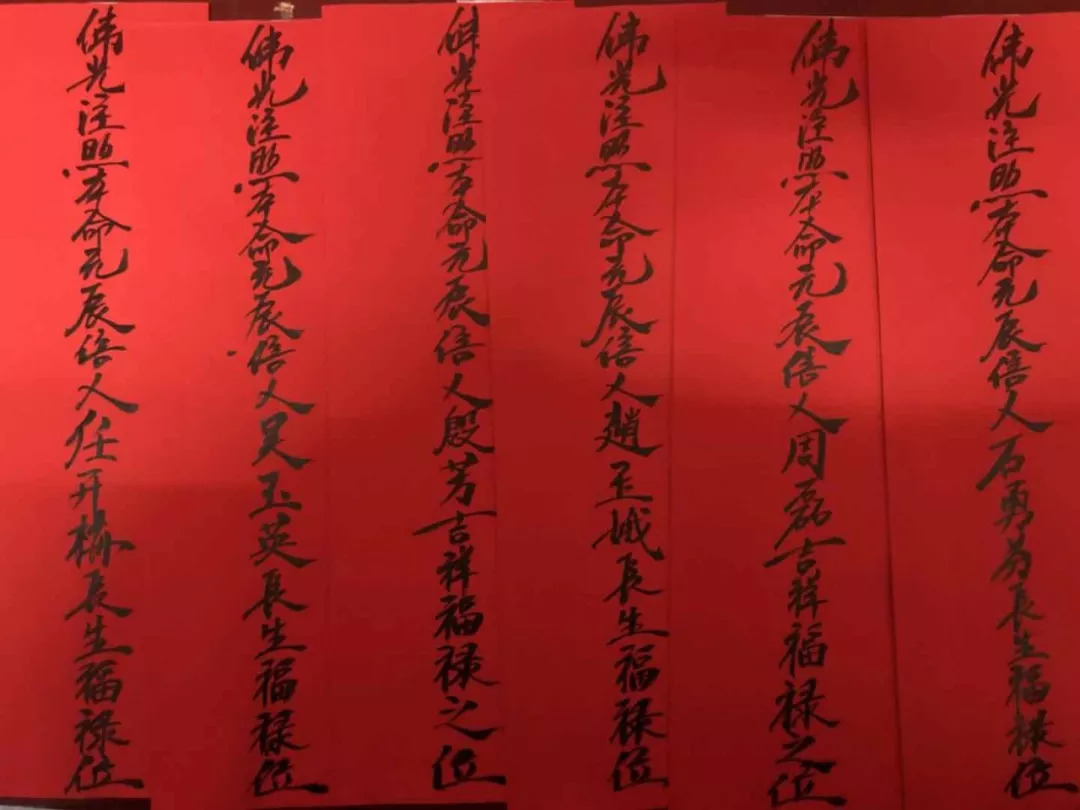 佛光注照本命元辰信人石勇長生福禄位
佛光注照本命元辰信人周磊吉祥福禄之位
佛光注照本命元辰信人趙玉娥長生福禄位
佛光注照本命元辰信人殷芳吉祥福禄之位
佛光注照本命元辰信人吴玉英長生福禄位
佛光注照本命元辰信人任开梅長生福禄位